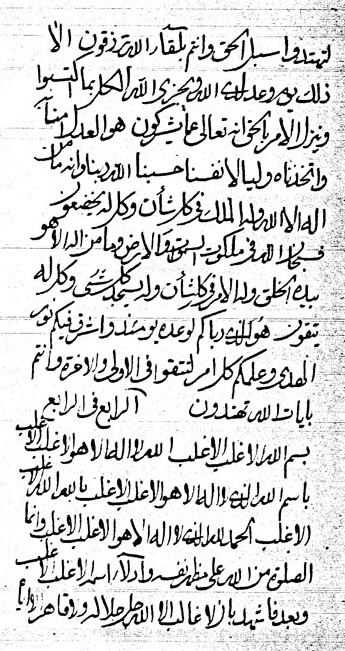 لتهتدوا سبل الحق وانتم بلقاء الله ترزقون الا
ذلك يوم وعد الله ويجزى الله الكل بما اكتسبوا
وينزل الامر بالحق انه تعالى عما يشركون هو العدل امنا به
واتخذناه وليا لانفسنا حسبنا الله ربنا وانه ما من
اله الا الله وله الملك في كل شأن وكل له يخضعون
فسبحان الله في ملكوت السموات والارض وما من اله الا هو
بيده الخلق وله الامر في كل شأن وله يسجد كل شئ وكل له
يتقون هو الذي رباكم لوعده يومئذ واشرق فيكم نور
الهدى وعلمكم كل امر لتتقوا في الاولى والاخرة وانتم
بايات الله تهتدون الرابع في الرابع
بسم الله الاغلب الاغلب الله لا اله الا هو الاغلب الاغلب
باسم الله الذي لا اله الا هو الاغلب الاغلب بالله الله الاغلب
الاغلب الحمد لله الذي لا اله الا هو الاغلب الاغلب وانما
الصلوة من الله على مظهر نفسه وادلاء اسمه الاغلب الاغلب
وبعد فاشهد بان لا غالب الا الله جل جلاله